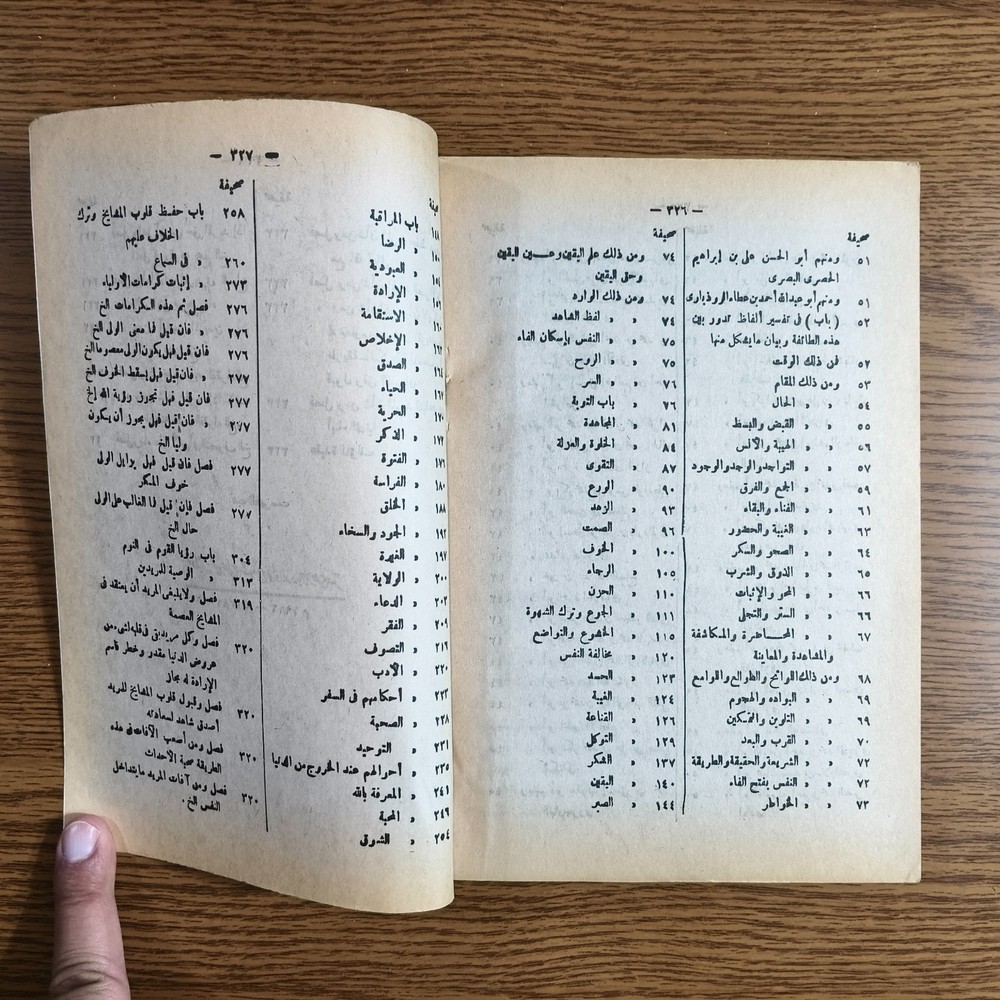 — ٣٢٦ —
صحيفة
٥١ ومنهم أبو الحسن على بن إبراهيم
الحصرى البصرى
٥١ ومنهم أبو عبدالله أحمد بن عطاء الروذبارى
٥٢ ( باب ) فى تفسير ألفاظ تدور بين
هذه الطائفة وبيان ما يشكل منها
٥٢ فمن ذلك الوقت
٥٣ ومن ذلك المقام
٥٤ » » الحال
٥٥ » » القبض والبسط
٥٦ » » الهيبة والأنس
٥٧ » » التواجد والوجد والوجود
٥٩ » » الجمع والفرق
٦١ » » الفناء والبقاء
٦٣ » » الغيبة والحضور
٦٤ » » الصحو والسكر
٦٥ » » الذوق والشرب
٦٦ » » المحو والإثبات
٦٦ » » الستر والتجلى
٦٧ » » المحاضرة والمكاشفة
والمشاهدة والمعاينة
٦٨ ومن ذلك اللوائح والطوالع واللوامع
٦٩ » » البواده والهجوم
٦٩ » » التلوين والتمكين
٧٠ » » القرب والبعد
٧٢ » » الشريعة والحقيقة والطريقة
٧٢ » » النفس بفتح الفاء
٧٣ » » الخواطر
صحيفة
٧٤ ومن ذلك علم اليقين وعين اليقين
وحق اليقين
٧٤ ومن ذلك الوارد
٧٤ » » لفظ الشاهد
٧٥ » » النفس بإسكان الفاء
٧٥ » » الروح
٧٦ » » السر
٧٦ » باب التوبة
٨١ » المجاهدة
٨٤ » الخلوة والعزلة
٨٧ » التقوى
٩٠ » الورع
٩٣ » الزهد
٩٦ » الصمت
١٠٠ » الخوف
١٠٥ » الرجاء
١١٠ » الحزن
١١١ » الجوع وترك الشهوة
١١٥ » الخشوع والتواضع
١٢٠ » مخالفة النفس
١٢٣ » الحسد
١٢٤ » الغيبة
١٢٦ » القناعة
١٢٩ » التوكل
١٣٧ » الشكر
١٤٠ » اليقين
١٤٤ » الصبر
— ٣٢٧ —
باب المراقبة
» الرضا
» العبودية
» الإرادة
» الاستقامة
» الإخلاص
» الصدق
» الحياء
» الحرية
» الذكر
» الفتوة
١٨٠ » الفراسة
١٨٨ » الخلق
١٩٢ » الجود والسخاء
١٩٧ » الغيرة
٢٠٠ » الولاية
٢٠٣ » الدعاء
٢٠٩ » الفقر
٢١٦ » التصوف
٢٢٠ » الأدب
٢٢٣ » أحكامهم فى السفر
٢٢٨ » الصحبة
٢٣١ » التوحيد
٢٣٥ » أحوالهم عند الخروج من الدنيا
٢٤١ » المعرفة بالله
٢٤٦ » المحبة
٢٥٤ » الشوق
صحيفة
٢٥٨ باب حفظ قلوب المشايخ وترك
الخلاف عليهم
٢٦٠ » فى السماع
٢٧٣ » إثبات كرامات الأولياء
٢٧٦ فصل ثم هذه الكرامات الخ
٢٧٦ » فان قيل فما معنى الولى الخ
٢٧٦ فان قيل فهل يكون الولى معصوما الخ
٢٧٧ » فان قيل فهل يسقط الخوف الخ
٢٧٧ فان قيل فهل تجوز رؤية الله الخ
٢٧٧ » فان قيل فهل يجوز أن يكون
وليا الخ
٢٧٧ فصل فان قيل فهل يزايل الولى
خوف المكر
٢٧٧ فصل فإن قيل فما الغالب على الولى
حال الخ
٣٠٤ باب رؤيا القوم فى النوم
٣١٣ » الوصية للمريدين
٣١٩ فصل ولا ينبغى المريد أن يعتقد فى
المشايخ العصمة
٣٢٠ فصل وكل مريد بقى فى قلبه لشىء من
عروض الدنيا مقدر وخطر فاسم
الإرادة له مجاز
٣٢٠ فصل وقبول قلوب المشايخ للمريد
أصدق شاهد لسعادته
٣٢٠ فصل ومن أصعب الآفات فى هذه
الطريقة صحبة الأحداث
٣٢٠ فصل ومن آفات المريد ما يتداخل
النفس الخ .